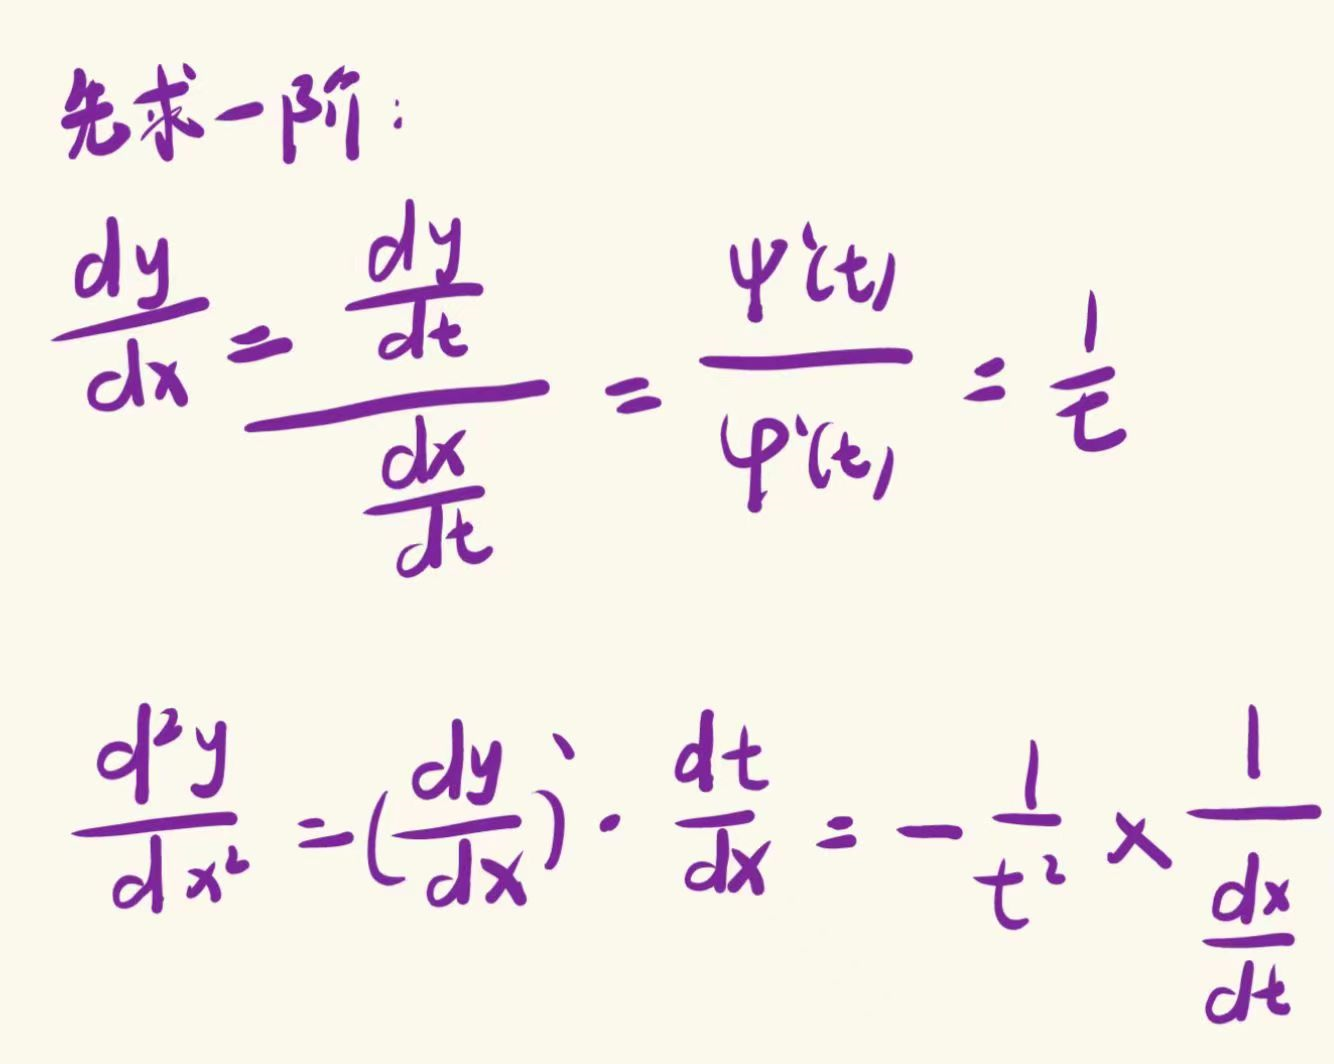 先求一阶:
dy/dx = (dy/dt)/(dx/dt) = ψ'(t)/φ'(t) = 1/t
d²y/dx² = (dy/dx)' · dt/dx = -1/t² × 1/(dx/dt)